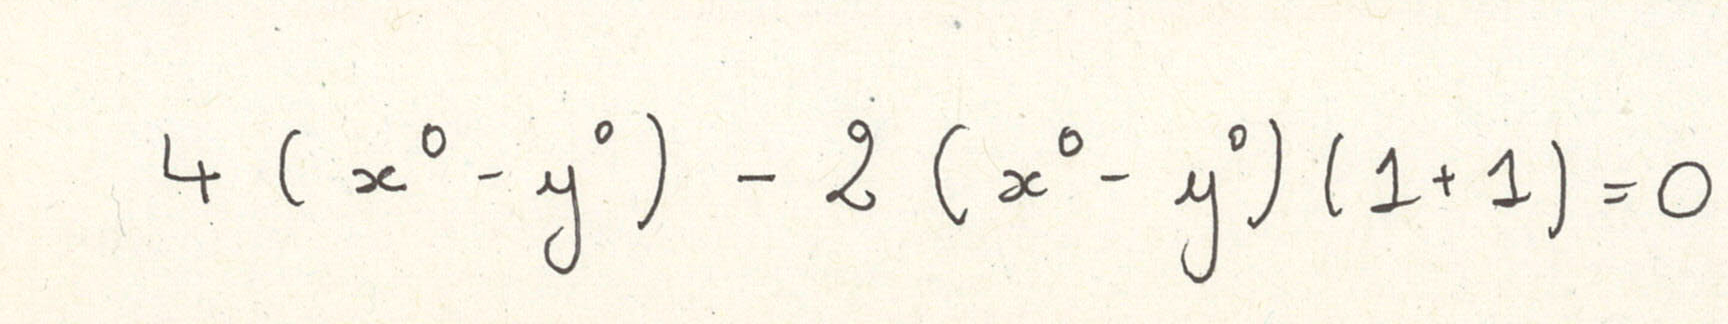 4 (x⁰ - y⁰) - 2 (x⁰ - y⁰) (1 + 1) = 0